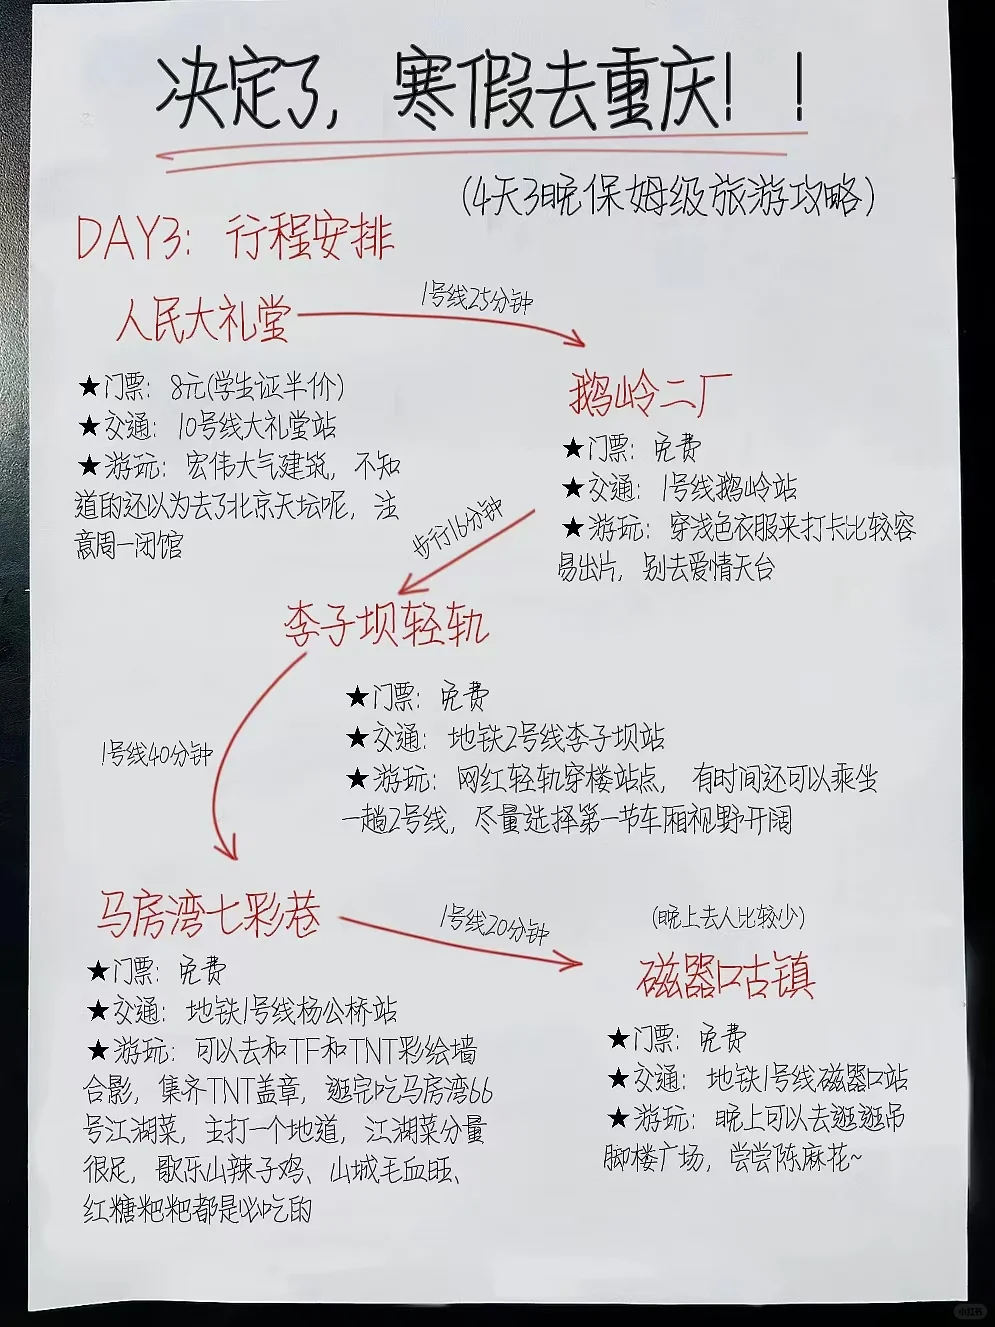 决定了，寒假去重庆！！
（4天3晚保姆级旅游攻略）
DAY3：行程安排
人民大礼堂
1号线25分钟
★门票：8元(学生证半价)
★交通：10号线大礼堂站
★游玩：宏伟大气建筑，不知
道的还以为去了北京天坛呢，注
意周一闭馆
鹅岭二厂
★门票：免费
★交通：1号线鹅岭站
★游玩：穿浅色衣服来打卡比较容
易出片，别去爱情天台
步行16分钟
李子坝轻轨
★门票：免费
★交通：地铁2号线李子坝站
★游玩：网红轻轨穿楼站点，有时间还可以乘坐
一趟2号线，尽量选择第一节车厢视野开阔
1号线40分钟
马房湾七彩巷
1号线20分钟
★门票：免费
★交通：地铁1号线杨公桥站
★游玩：可以去和TF和TNT彩绘墙
合影，集齐TNT盖章，逛完吃马房湾66
号江湖菜，主打一个地道，江湖菜分量
很足，歌乐山辣子鸡、山城毛血旺、
红糖粑粑都是必吃的
（晚上去人比较少）
磁器口古镇
★门票：免费
★交通：地铁1号线磁器口站
★游玩：晚上可以去逛逛吊
脚楼广场，尝尝陈麻花~
小红书